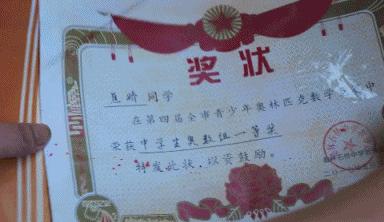 奖状
夏晴同学
在第四届全市青少年奥林匹克数学 中
荣获中学生奥数组一等奖
特发此状,以资鼓励。